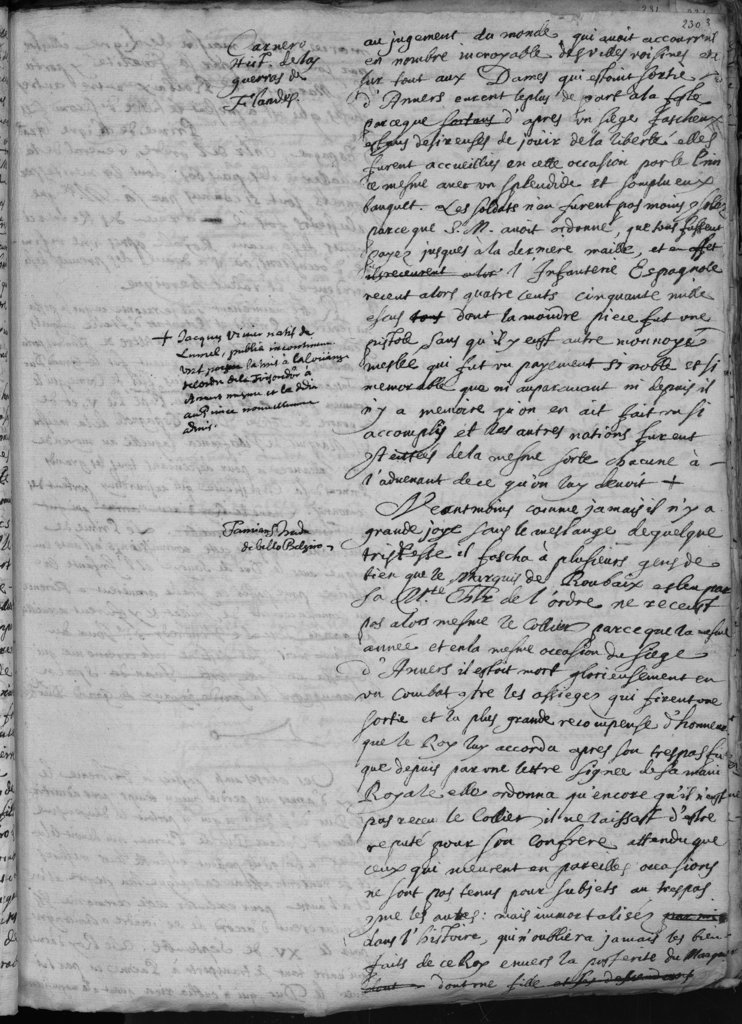 2303
Carnero
Hist. de las
guerras de
Flandes.
au jugement du monde qui avoit accouru
en nombre incroyable des villes voisines et
sur tout aux Dames qui estoint sorties
d'Anvers eurent le plus de part a la feste
parceque sortans d'apres un siege fascheux
et bien desireuses de jouir de la liberté elles
furent accueillies en cette occasion par le Prin
ce mesme avec un splendide et somptueux
banquet. Les soldats n'en furent pas moins
parceque S. M. avoit ordonné, que tous fussent
payez jusques à la derniere maille, et en effet
ils receurent alors l'Infanterie Espagnole
receut alors quatre cents cinquante mille
escus tout dont la moindre piece fut une
pistole, sans qu'il y eust autre monnoye
meslée qui fut un payement si noble et si
memorable que ni auparavant ni depuis il
n'y a memoire qu'on en ait fait un si
accomplis et les autres nations furent
de la mesme sorte chacune à
l'advenant de ce qu'on luy devoit +
+ Jacques Vivier natif de
publia incontinent
la mis à la louange
de la Toison d'or à
et la dedia
au Prince nouvellement
admis.
Neantmoins comme jamais il n'y a
grande joye sans le meslange de quelque
tristesse il fascha à plusieurs gens de
bien que le Marquis de Roubaix esleu par
Sa M.te Chlr de l'ordre ne receust
pas alors mesme le Collier parceque la mesme
année et en la mesme occasion du siege
d'Anvers il estoit mort glorieusement en
un combat contre les assiegez qui firent une
sortie et la plus grande recompense d'honneur
que le Roy luy accorda apres son trespas fut
que depuis par une lettre signée de sa main
Royale elle ordonna qu'encore qu'il n'eust
pas receu le Collier il ne laissast d'estre
reputé pour son confrere attendu que
ceux qui meurent en pareilles occasions
ne sont pas tenus pour subjets au trespas
comme les autres: mais immortalisez par mi
dans l'histoire, qui n'oubliera jamais les bien
faits de ce Roy envers la posterité du Marquis
dont dont une fille et ses descendans
Famian Strada
de bello Belgico